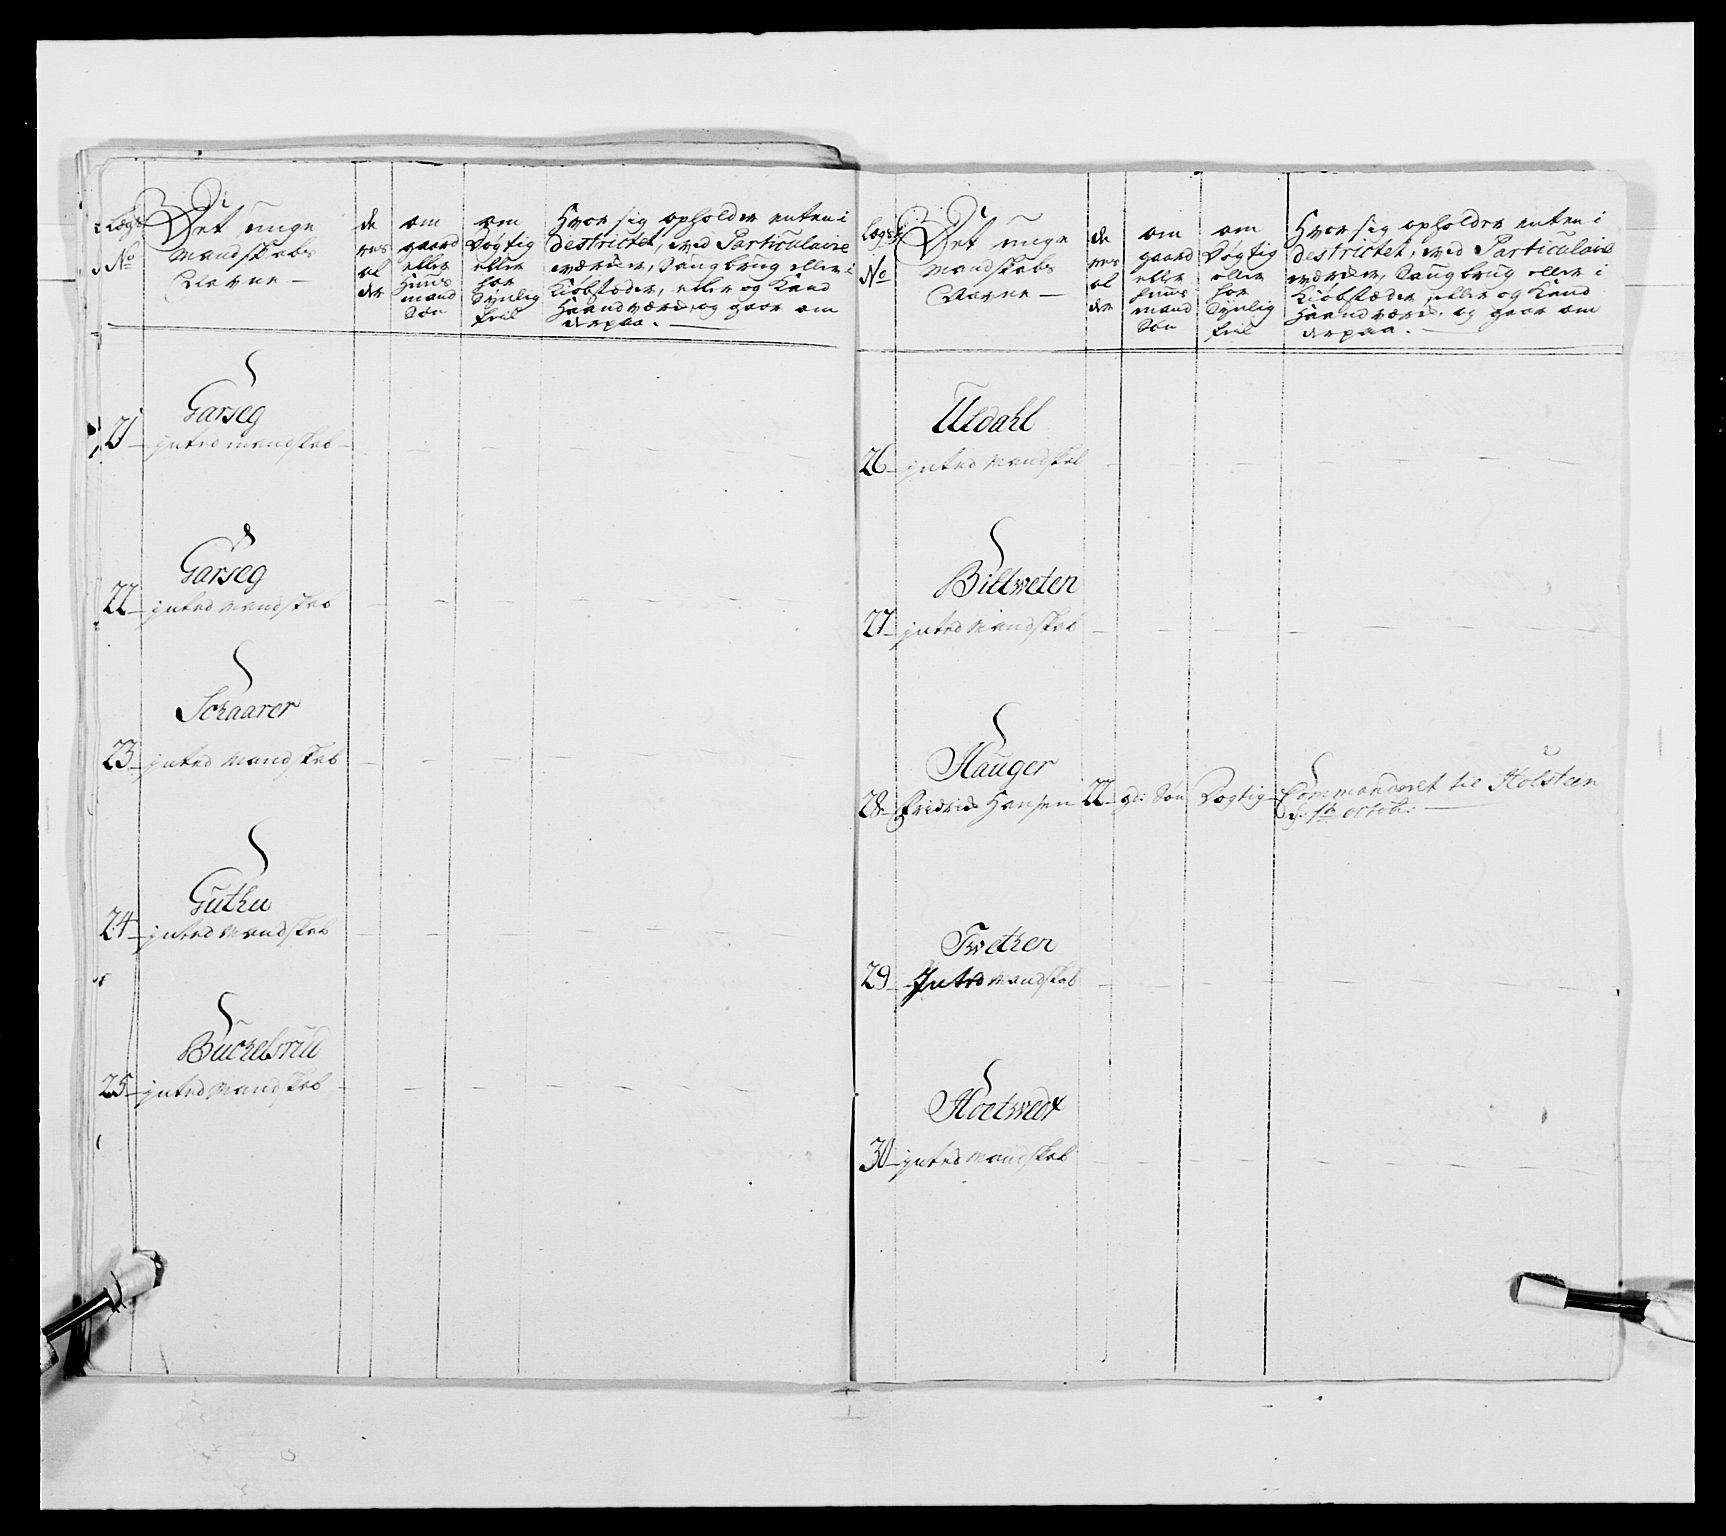 Legs No
Det unge Mandskabs Navne
de res al der
om gaard eller huus mand Søn
om Døgtig eller for Synlig feil
Hvor sig opholder enten i
destrictet, ved Particulaire
værcker, Saugbrug eller i
Kiøbstæder, eller og Kand
Haandværck, og gaar om
derpaa.
Garseg
21 inted mandskab
Garseg
22 inted Mandskab
Schaarer
23 inted Mandskab
Guthu
24 inted Mandskab
Buchelsrud
25 inted Mandskab
Legs No
Det unge Mandskabs Navne
de res al der
om gaard eller huus mand Søn
om Døgtig eller for Synlig feil
Hvor sig opholder enten i
destrictet, ved Particulaire
værcker, Saugbrug eller i
Kiøbstæder, eller og Kand
Haandværck, og gaar om
derpaa.
Uldahl
26 inted Mandskab
Biltweten
27 inted Mandskab
Hauger
28 Fridrich Hansen 22 gd: Søn Dogtig Commanderet til Holsteen
d: octob:
Twethen
29 Inted Mandskab
Hoetwedt
30 inted Mandskab